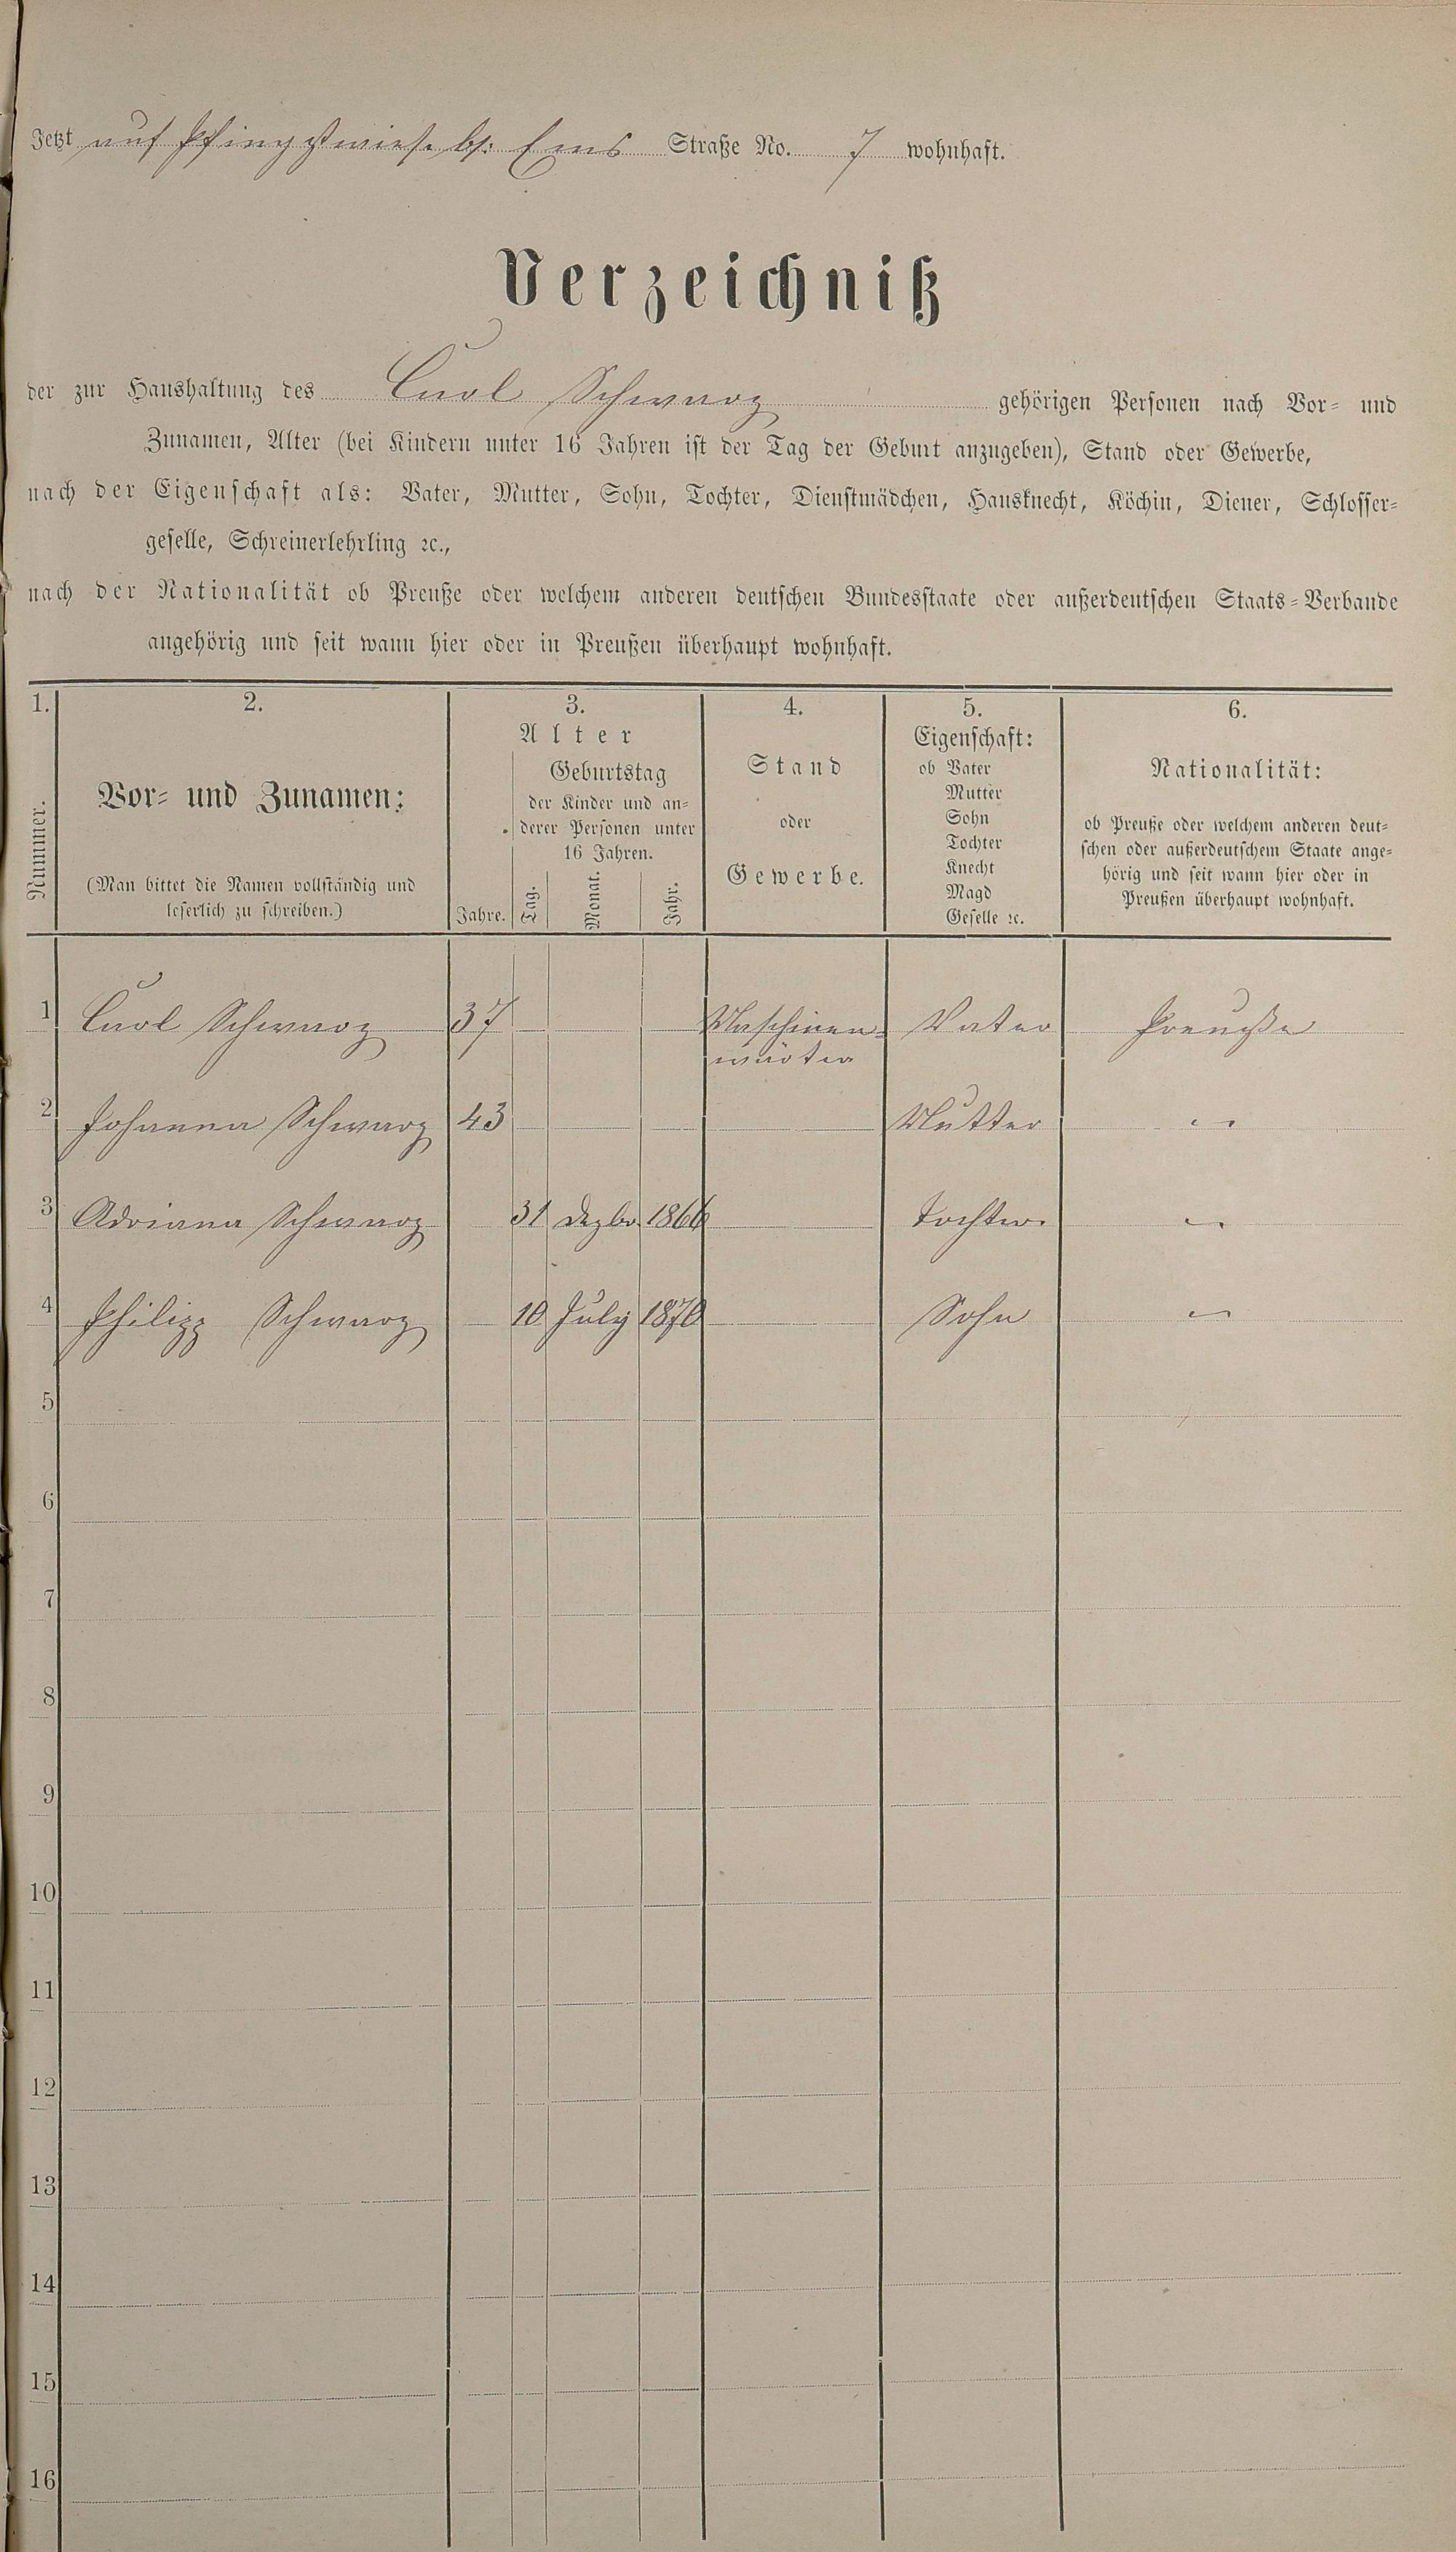 Jetzt auf Pfingstwiese b/. Ems Straße No. 7 wohnhaft.
Verzeichniß
der zur Haushaltung des Carl Schwarz gehörigen Personen nach Vor- und
Zunamen, Alter (bei Kindern unter 16 Jahren ist der Tag der Geburt anzugeben), Stand oder Gewerbe,
nach der Eigenschaft als: Vater, Mutter, Sohn, Tochter, Dienstmädchen, Hausknecht, Köchin, Diener, Schlosser-
geselle, Schreinerlehrling ꝛc.,
nach der Nationalität ob Preuße oder welchem anderen deutschen Bundesstaate oder außerdeutschen Staats-Verbande
angehörig und seit wann hier oder in Preußen überhaupt wohnhaft.
1. 2. 3. 4. 5. 6.
Nummer.
Vor- und Zunamen:
(Man bittet die Namen vollständig und
leserlich zu schreiben.)
Alter
Geburtstag
der Kinder und an-
derer Personen unter
16 Jahren.
Jahre. Tag. Monat. Jahr.
Stand
oder
Gewerbe.
Eigenschaft:
ob Vater
Mutter
Sohn
Tochter
Knecht
Magd
Geselle ꝛc.
Nationalität:
ob Preuße oder welchem anderen deut-
schen oder außerdeutschem Staate ange-
hörig und seit wann hier oder in
Preußen überhaupt wohnhaft.
1 Carl Schwarz 37 Maschinen- Vater Preuße
wärter
2 Johanna Schwarz 43 Mutter "
3 Adriana Schwarz 31 Dezbr. 1866 Tochter. "
4 Philipp Schwarz 10 July 1870 Sohn "
5
6
7
8
9
10
11
12
13
14
15
16